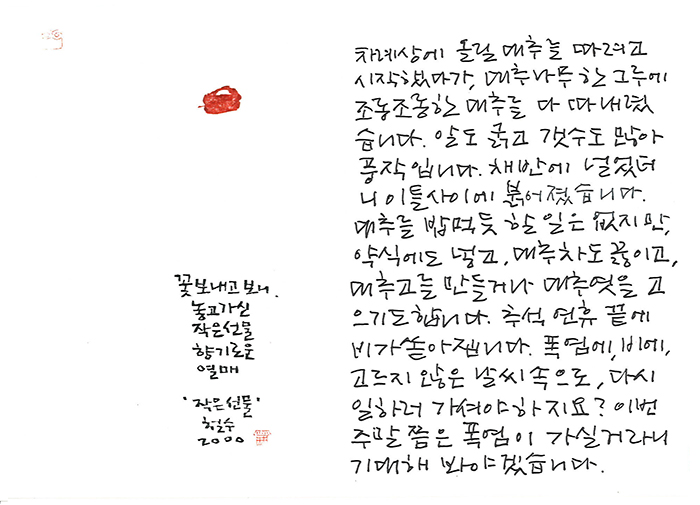 꽃 보내고 보니,
놓고가신
작은선물
향기로운
열매
"작은선물"
철수
2000
차례상에 올릴 대추를 따려고
시작했다가, 대추나무 한그루에
조롱조롱한 대추를 다 따내렸
습니다. 알도 굵고 갯수도 많아
풍작입니다. 채반에 널었더
니 이틀사이에 붉어졌습니다.
대추를 밥먹듯 할 일은 없지만,
약식에도 넣고, 대추차도 끓이고,
대추고를 만들거나 대추엿을 고
으기도합니다. 추석 연휴 끝에
비가쏟아집니다. 폭염에, 비에,
고르지 않은 날씨속으로, 다시
일하러 가셔야하지요? 이번
주말 쯤은 폭염이 가실거라니
기대해 봐야겠습니다.